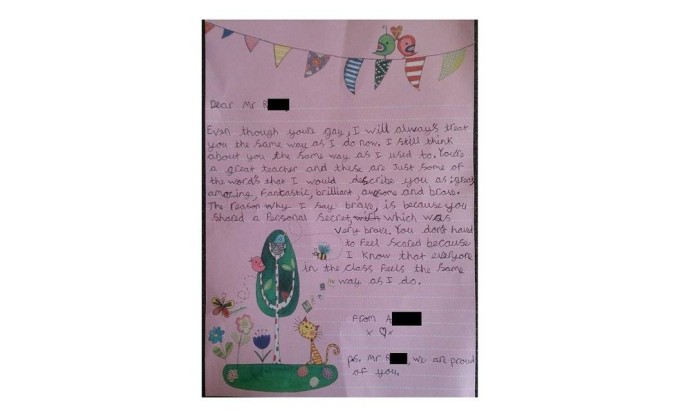 Dear Mr
Even though your'e gay, I will always treat
you the same way as I do now. I still think
about you the same way as I used to. You're
a great teacher and these are just some of
the word's that I would describe you as: great,
amazing, fantastic, brilliant, awesome and brave.
The reason why I say brave, is because you
shared a Personal secret, which was
very brave. You don't have
to feel scared because
I know that everyone
in the class feels the same
way as I do.
From A
x ♡ x
ps. Mr, we are proud
of you.